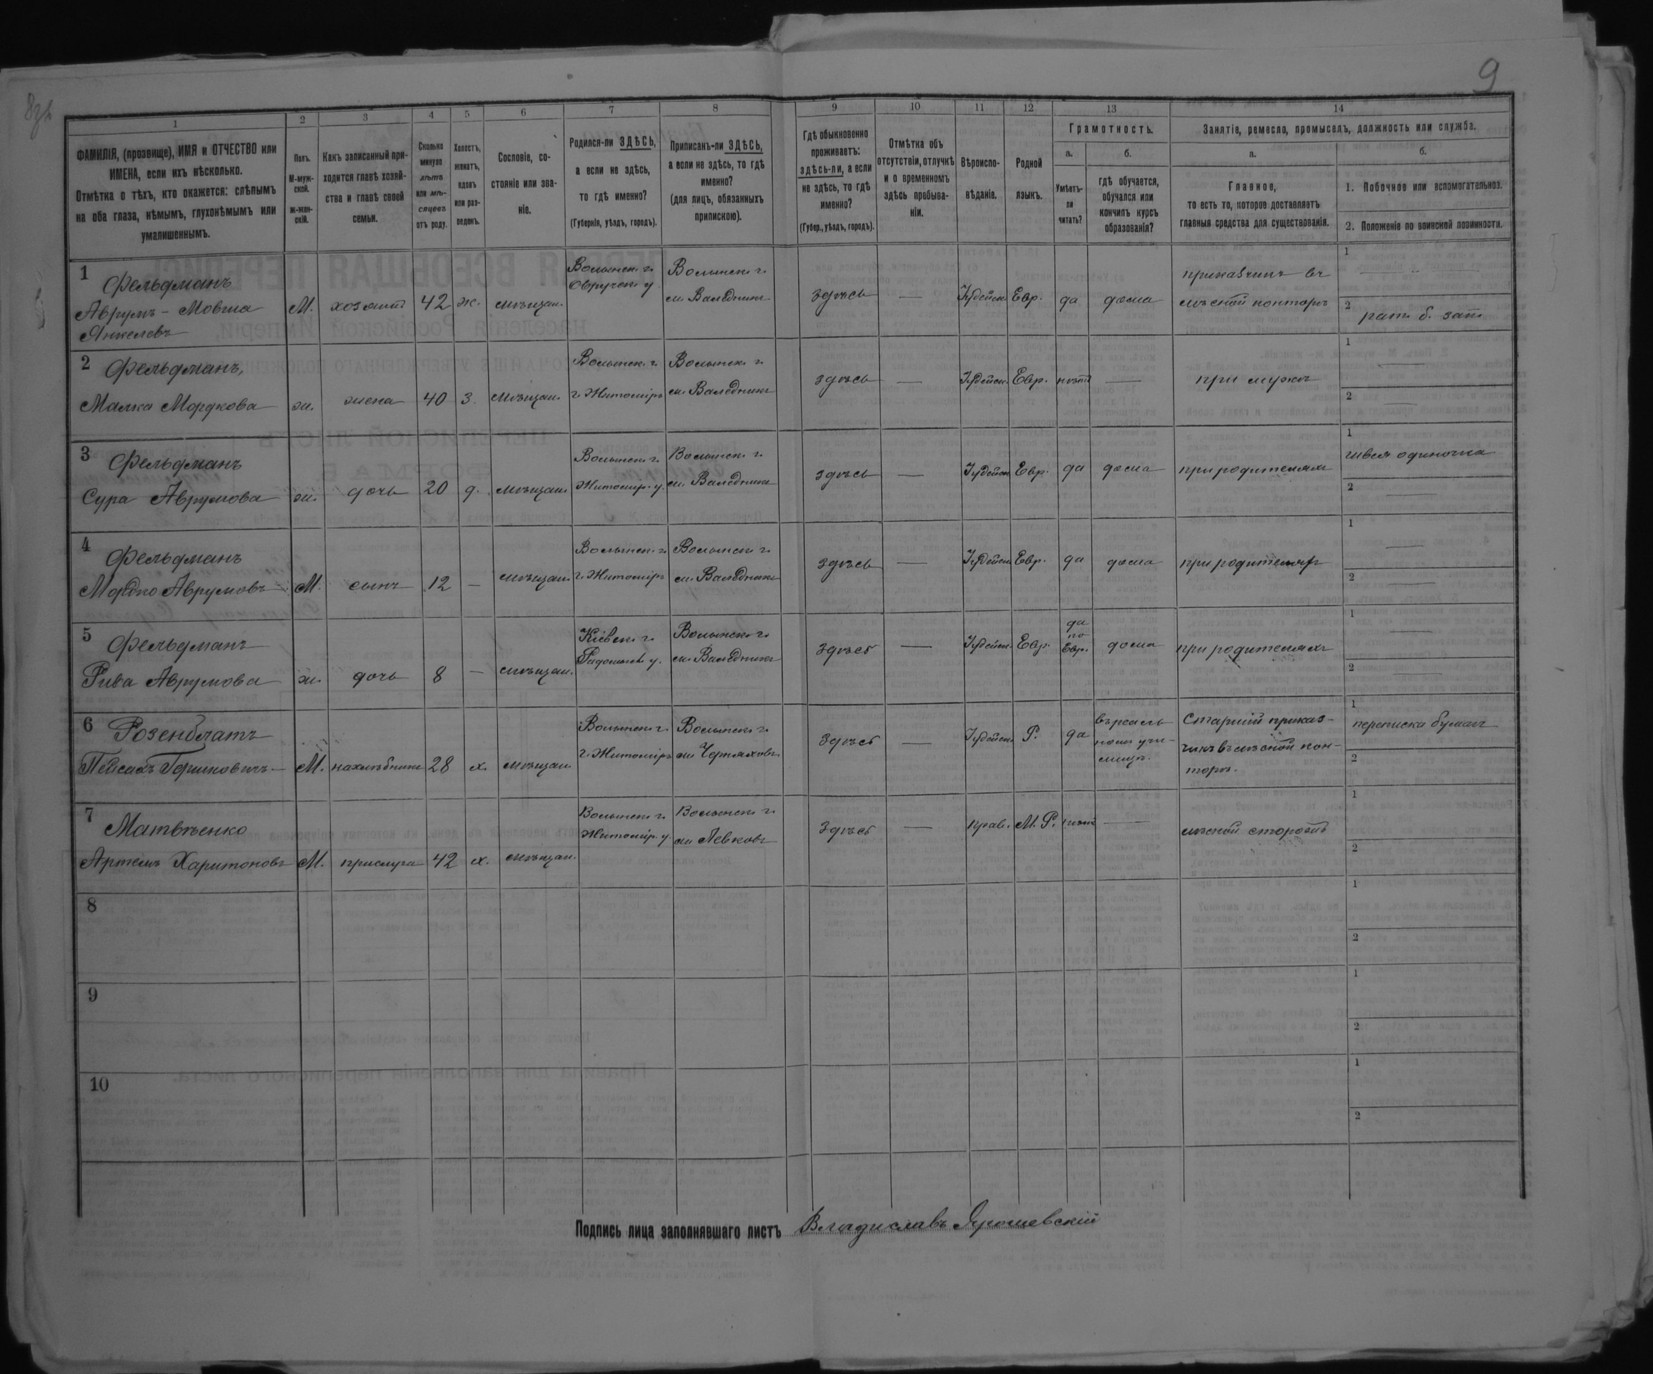 9
1 2 3 4 5 6 7 8 9 10 11 12 13 14
ФАМИЛІЯ, (прозвище), ИМЯ и ОТЧЕСТВО или
ИМЕНА, если ихъ нѣсколько.
Отмѣтка о тѣхъ, кто окажется: слѣпымъ
на оба глаза, нѣмымъ, глухонѣмымъ или
умалишеннымъ.
Полъ.
М-муж-
ской.
ж-жен-
скій.
Какъ записанный при-
ходится главѣ хозяй-
ства и главѣ своей
семьи.
Сколько
минуло
лѣтъ
или мѣ-
сяцевъ
отъ роду.
Холостъ,
женатъ,
вдовъ
или раз-
веденъ.
Сословіе, со-
стояніе или зва-
ніе.
Родился-ли ЗДѢСЬ,
а если не здѣсь,
то гдѣ именно?
(Губернія, уѣздъ, городъ).
Приписанъ-ли ЗДѢСЬ,
а если не здѣсь, то гдѣ
именно?
(для лицъ, обязанныхъ
припискою).
Гдѣ обыкновенно
проживаетъ:
здѣсь-ли, а если
не здѣсь, то гдѣ
именно?
(Губер., уѣздъ, городъ).
Отмѣтка объ
отсутствіи, отлучкѣ
и о временномъ
здѣсь пребыва-
ніи.
Вѣроиспо-
вѣданіе.
Родной
языкъ.
Грамотность.
а.
Умѣетъ-
ли
читать?
б.
гдѣ обучается,
обучался или
кончилъ курсъ
образованія?
Занятіе, ремесло, промыселъ, должность или служба.
а.
Главное,
то есть то, которое доставляетъ
главныя средства для существованія.
б.
1. Побочное или вспомогательное.
2. Положеніе по воинской повинности.
1 Фельдманъ
Аврумъ-Мовша
Янкелевъ
М. хозяинъ 42 ж. мѣщан.
Волынск. г.
Овручск. у.
Волынск. г.
м. Валедники
здѣсь — Іудейск. Евр. да дома
приказчикъ въ
лѣсной конторѣ
1 —
2 ратн. б. зап.
2 Фельдманъ,
Малка Мордкова
ж. жена 40 з. мѣщан.
Волынск. г.
г. Житоміръ
Волынск. г.
м. Валедники
здѣсь — Іудейск. Евр. нѣтъ — при мужѣ
1 —
2 —
3 Фельдманъ
Сура Аврумова
ж. дочь 20 д. мѣщан.
Волынск. г.
Житомір. у.
Волынск. г.
м. Валедники
здѣсь — Іудейск. Евр. да дома при родителяхъ
1 швея одиночка
2 —
4 Фельдманъ
Мордко Аврумовъ
М. сынъ 12 — мѣщан.
Волынск. г.
г. Житоміръ
Волынск. г.
м. Валедники
здѣсь — Іудейск. Евр. да дома при родителяхъ
1 —
2 —
5 Фельдманъ
Рива Аврумова
ж. дочь 8 — мѣщан.
Кіевск. г.
Радомысл. у.
Волынск. г.
м. Валедники
здѣсь — Іудейск. Евр.
да
по
Евр.
дома при родителяхъ
1 —
2 —
6 Розенблатъ
Пейсахъ Гершковичъ
М. нахлѣбникъ 28 х. мѣщан.
Волынск. г.
г. Житоміръ
Волынск. г.
м. Черняховъ
здѣсь — Іудейск. Р. да
Старшій приказ-
чикъ въ лѣсной кон-
торѣ.
1 переписка бумагъ
2
7 Матвѣенко
Артемъ Харитоновъ
М. прислуга 42 х. мѣщан.
Волынск. г.
Житомір. у.
Волынск. г.
м. Левковъ
здѣсь — прав. М. Р. нѣтъ — лѣсной сторожъ
1
2
8
1
2
9
1
2
10
1
2
Подпись лица заполнявшаго листъ Владиславъ Ярошевскій